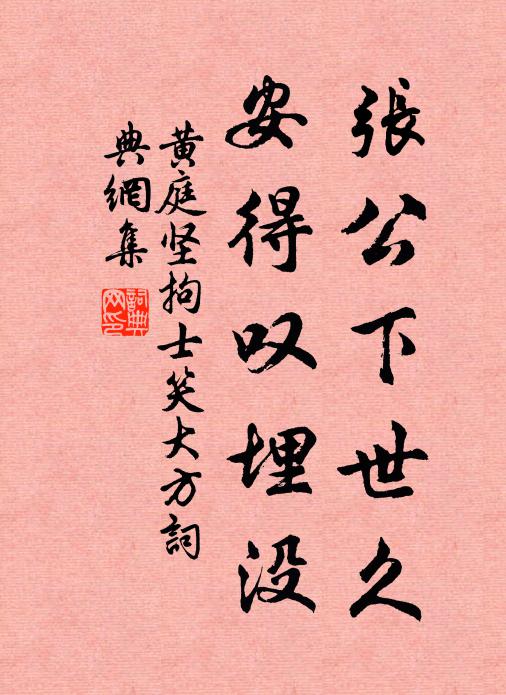 張公下世久
安得叹埋没
黄庭坚拘士笑大方詞
典網集
詞典网印